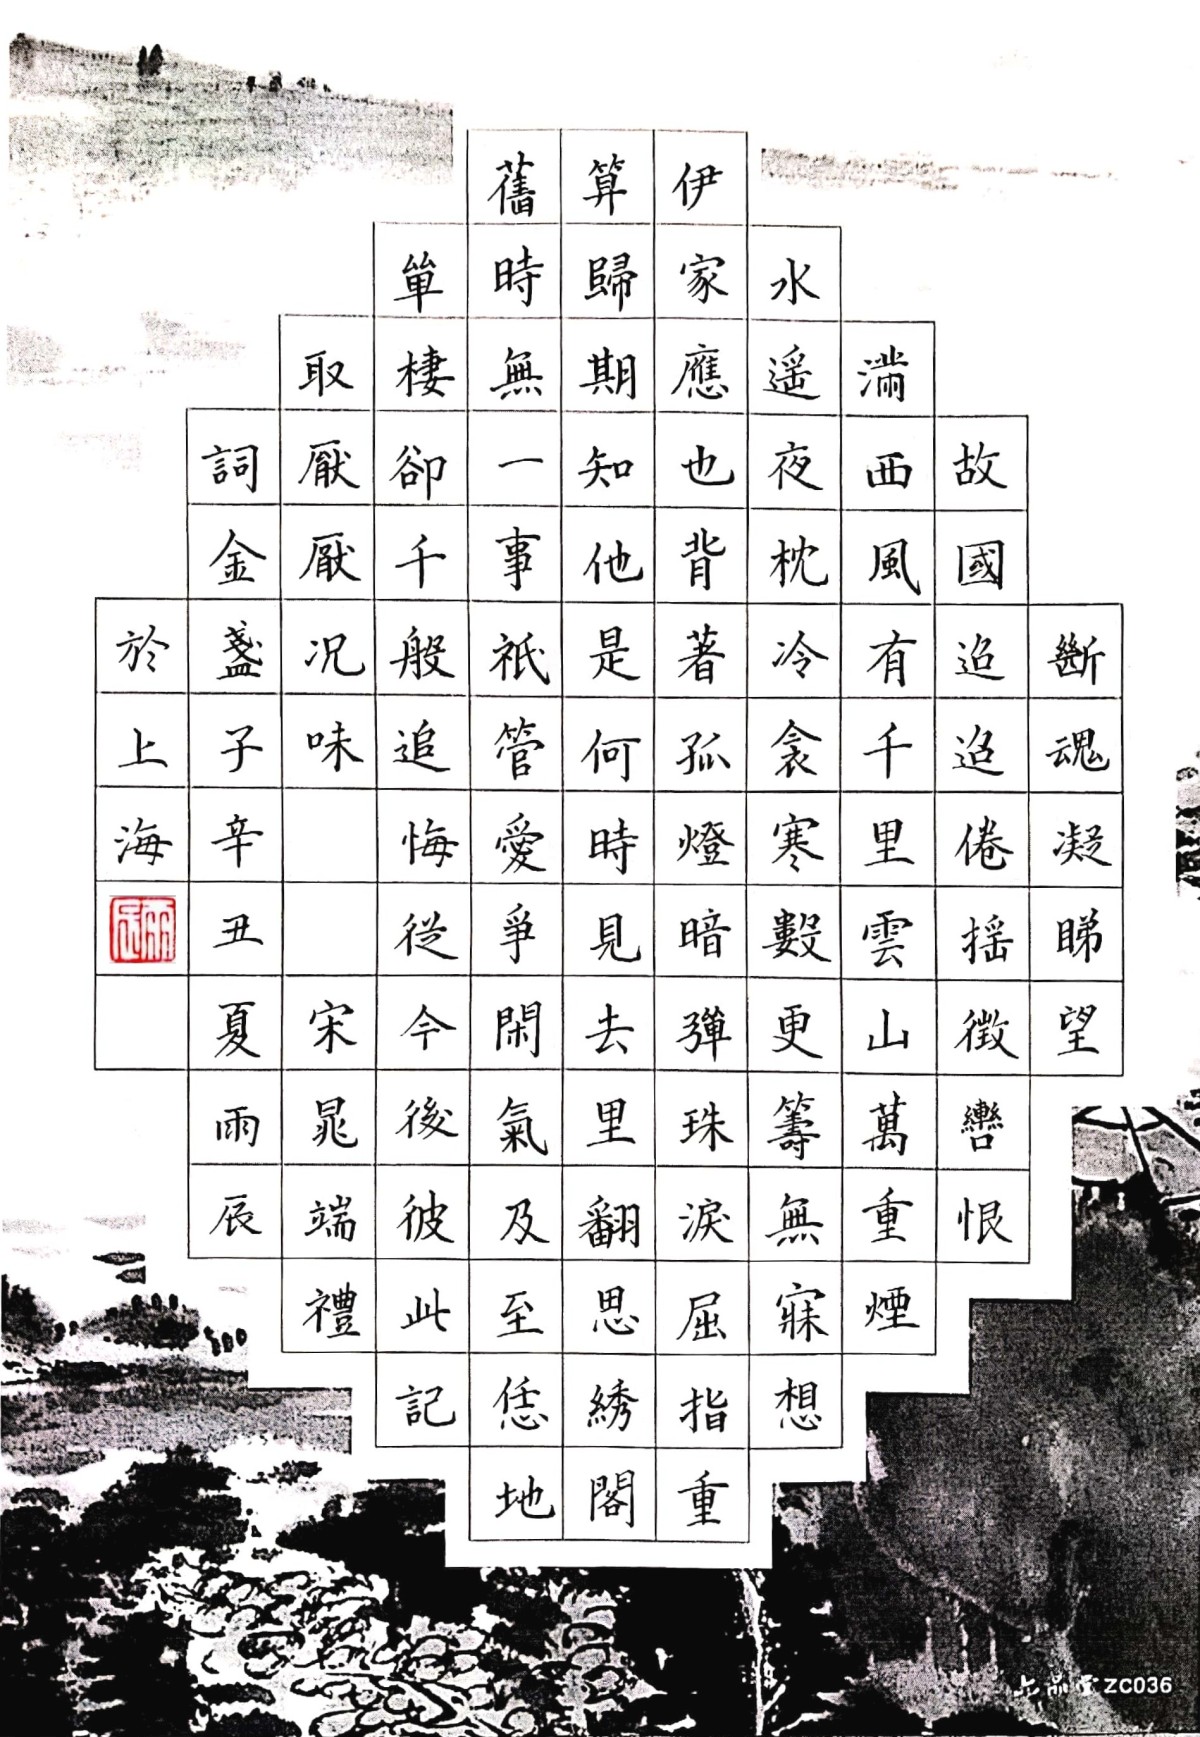 斷魂凝睇望
故國迢迢倦揺徵轡恨
滿西風有千里雲山萬重煙
水遥夜枕冷衾寒數更籌無寐想
伊家應也背著孤燈暗彈珠淚屈指重
算歸期知他是何時見去里翻思綉閣
舊時無一事祇管愛爭閑氣及至恁地
單棲卻千般追悔從今後彼此記
取厭厭况味 宋晁端禮
詞金盞子辛丑夏雨辰
於上海
雨辰
六品堂 ZC036